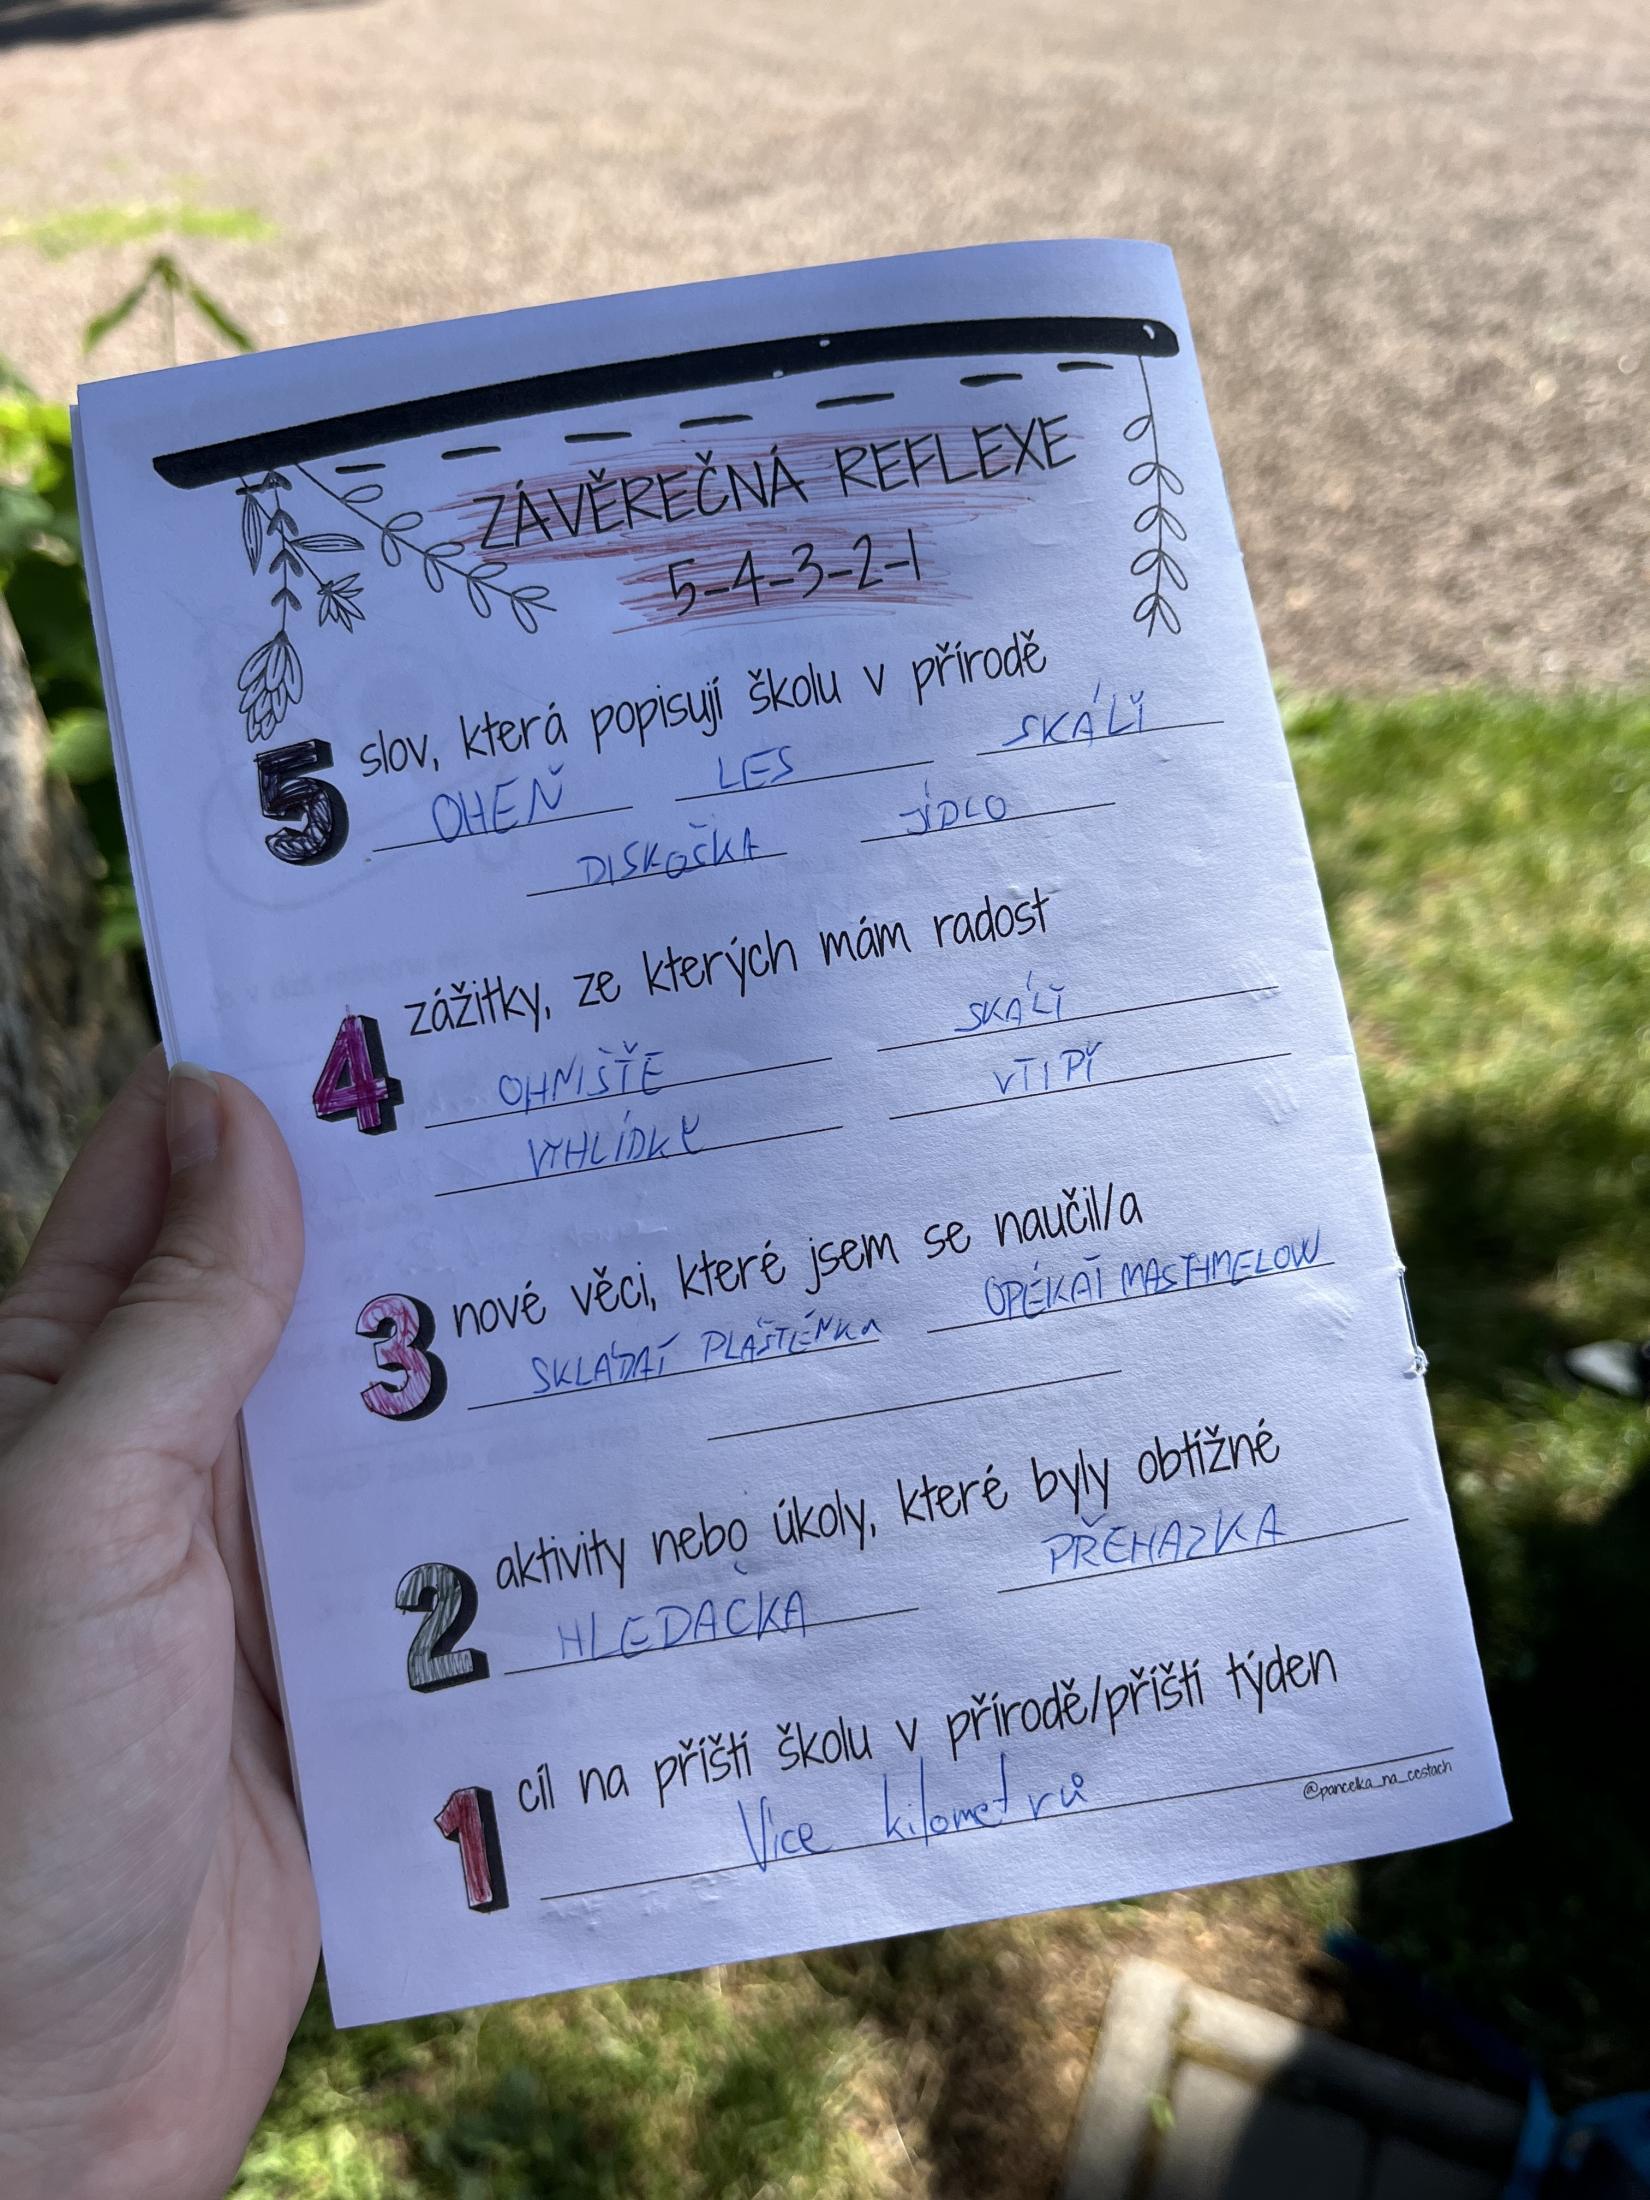 ZÁVĚREČNÁ REFLEXE
5-4-3-2-1
5 slov, která popisují školu v přírodě
OHEŇ LES SKÁLÍ
DISKOŠKA JÍDLO
4 zážitky, ze kterých mám radost
OHNIŠTĚ SKÁLÍ
VYHLÍDKY VTIPÝ
3 nové věci, které jsem se naučil/a
SKLÁDAT PLÁŠTĚNKA OPÉKAT MASTHMELOW
2 aktivity nebo úkoly, které byly obtížné
HLEDAČKA PŘEHAZKA
1 cíl na příští školu v přírodě/příští týden
Více kilometrů
@pancelka_na_cestach